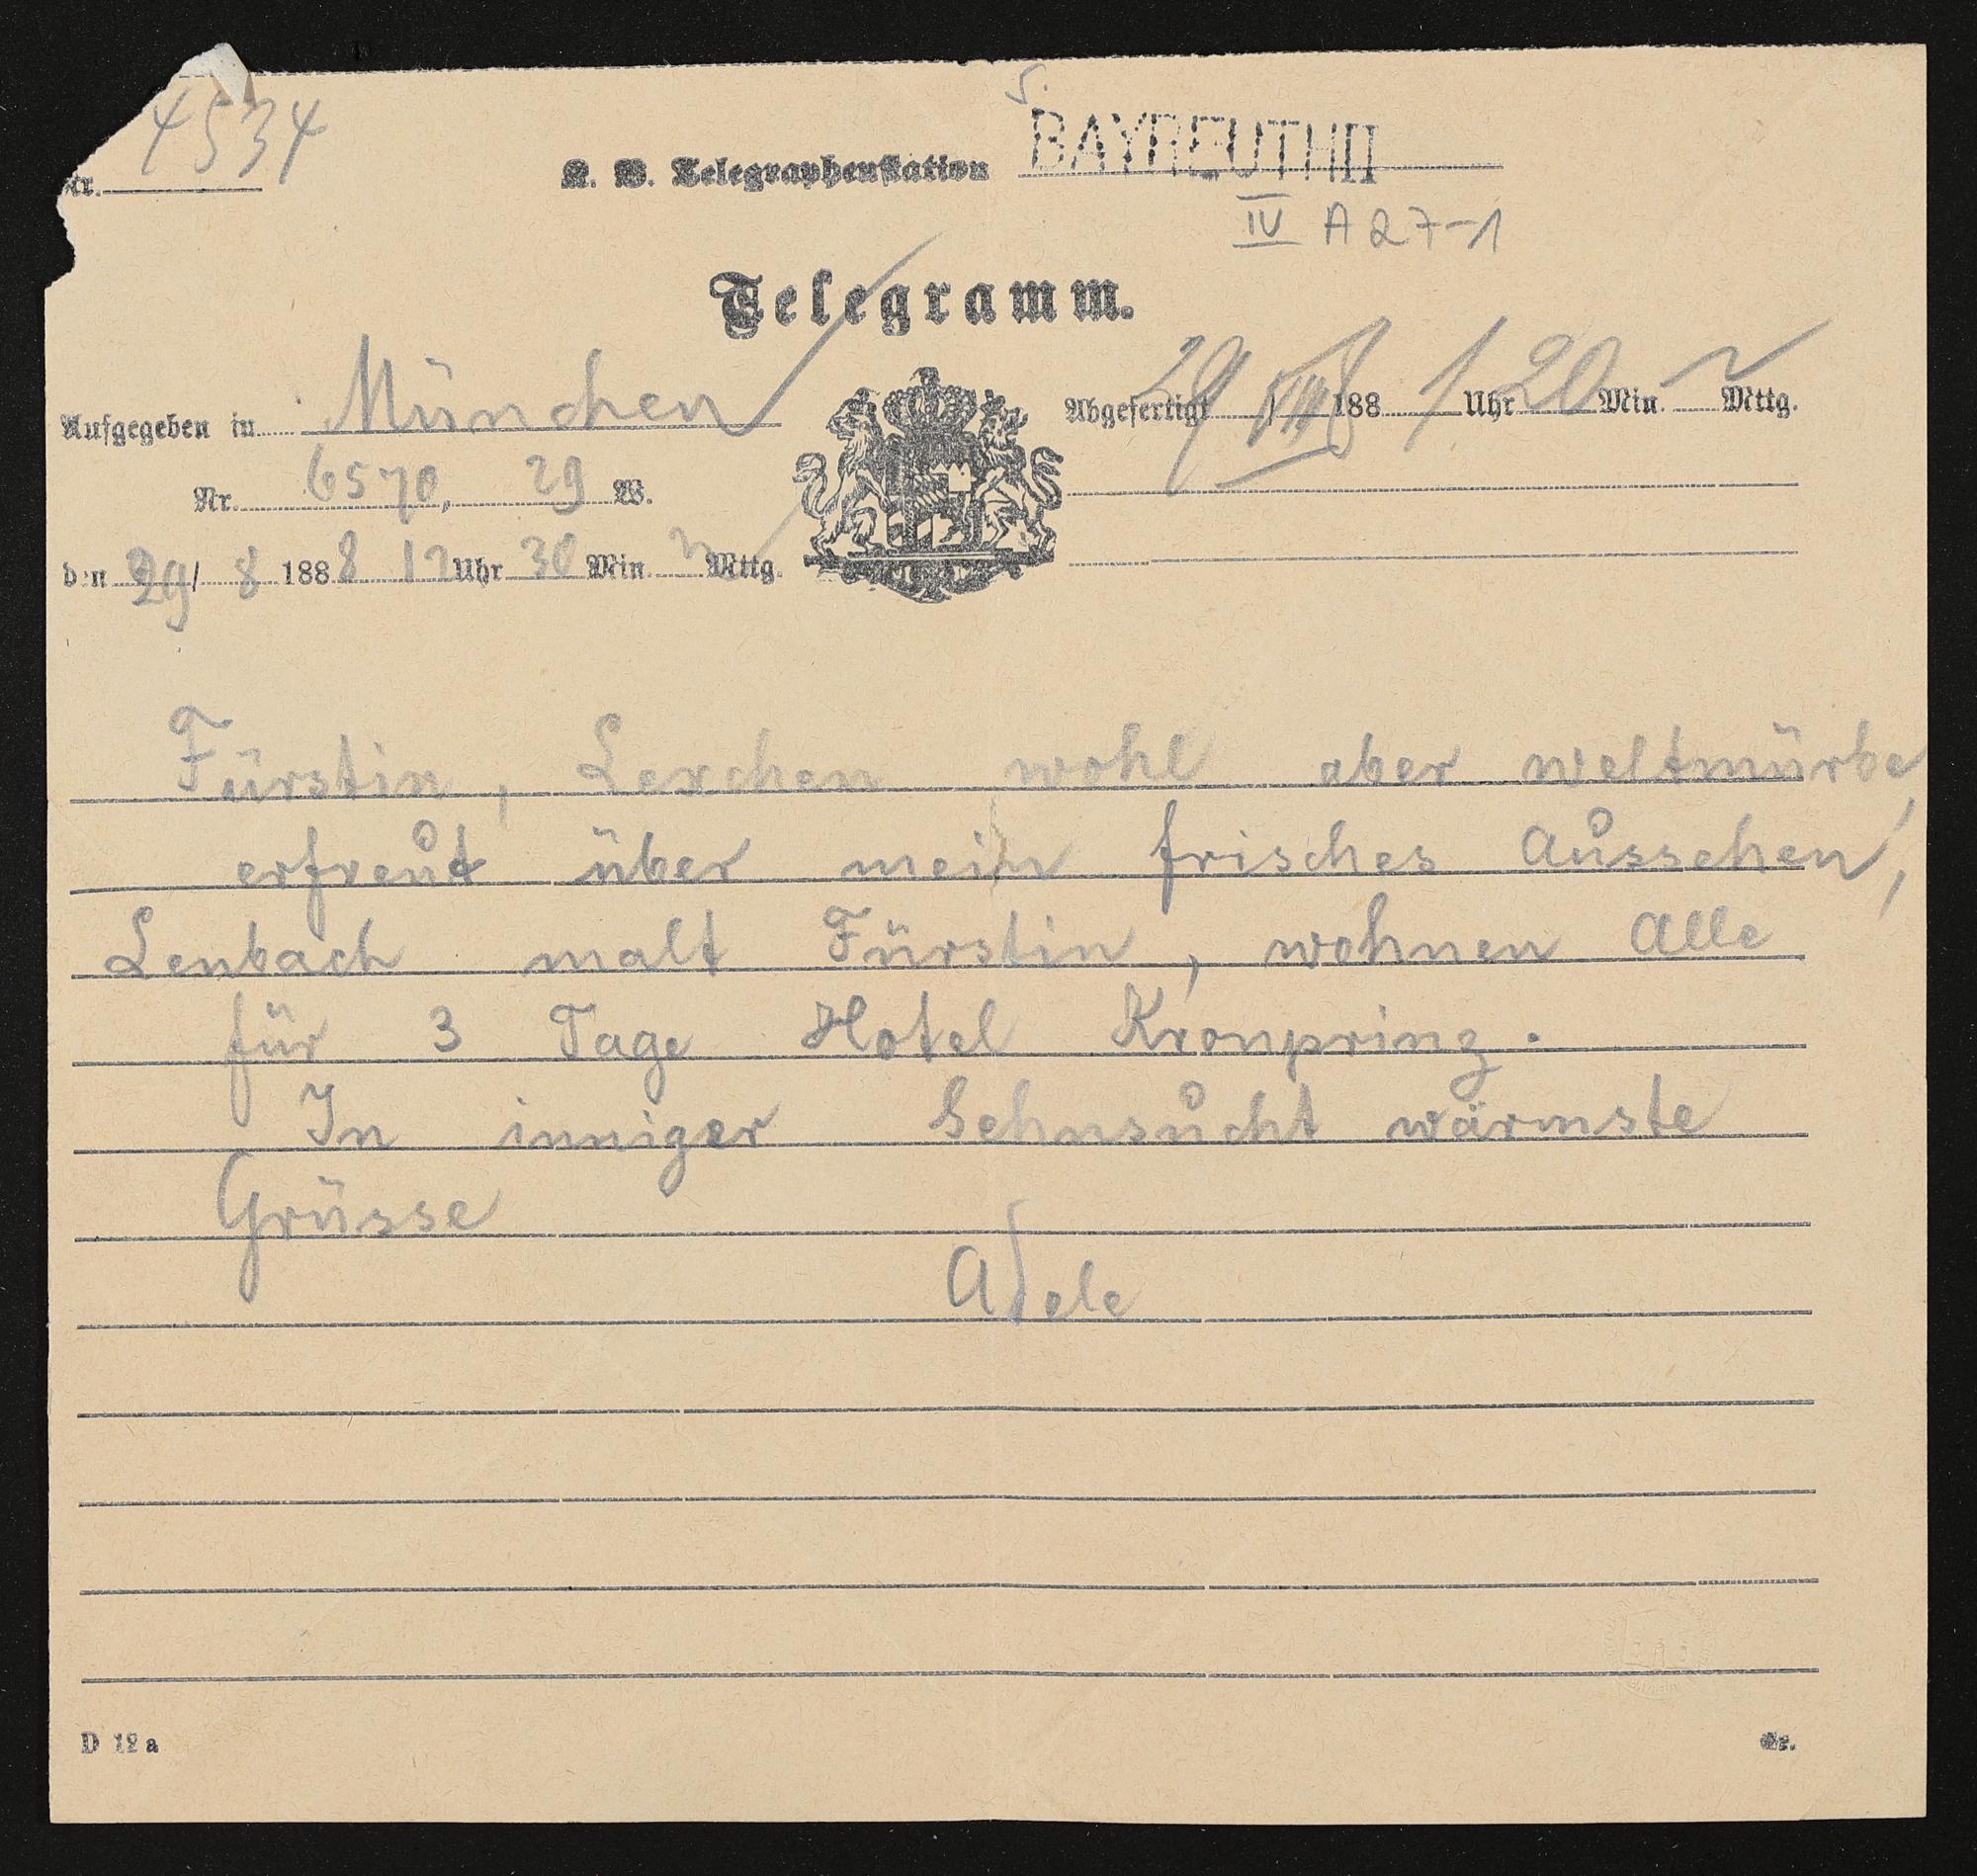 5.
4534
Nr.
K. B. Telegraphenstation BAYREUTH II
IV A 27-1
Telegramm.
Aufgegeben in München
Nr. 6570, 29 W.
den 29/ 8 1888 12 Uhr 30 Min. n Mttg.
Abgefertigt 29 / VIII 1888 1 Uhr 20 Min. n Mttg.
Fürstin, Lerchen wohl aber weltmürbe,
erfreut über mein frisches Aussehen,
Lenbach malt Fürstin, wohnen Alle
für 3 Tage Hotel Kronprinz.
In inniger Sehnsucht wärmste
Grüsse
Adele
D 12 a